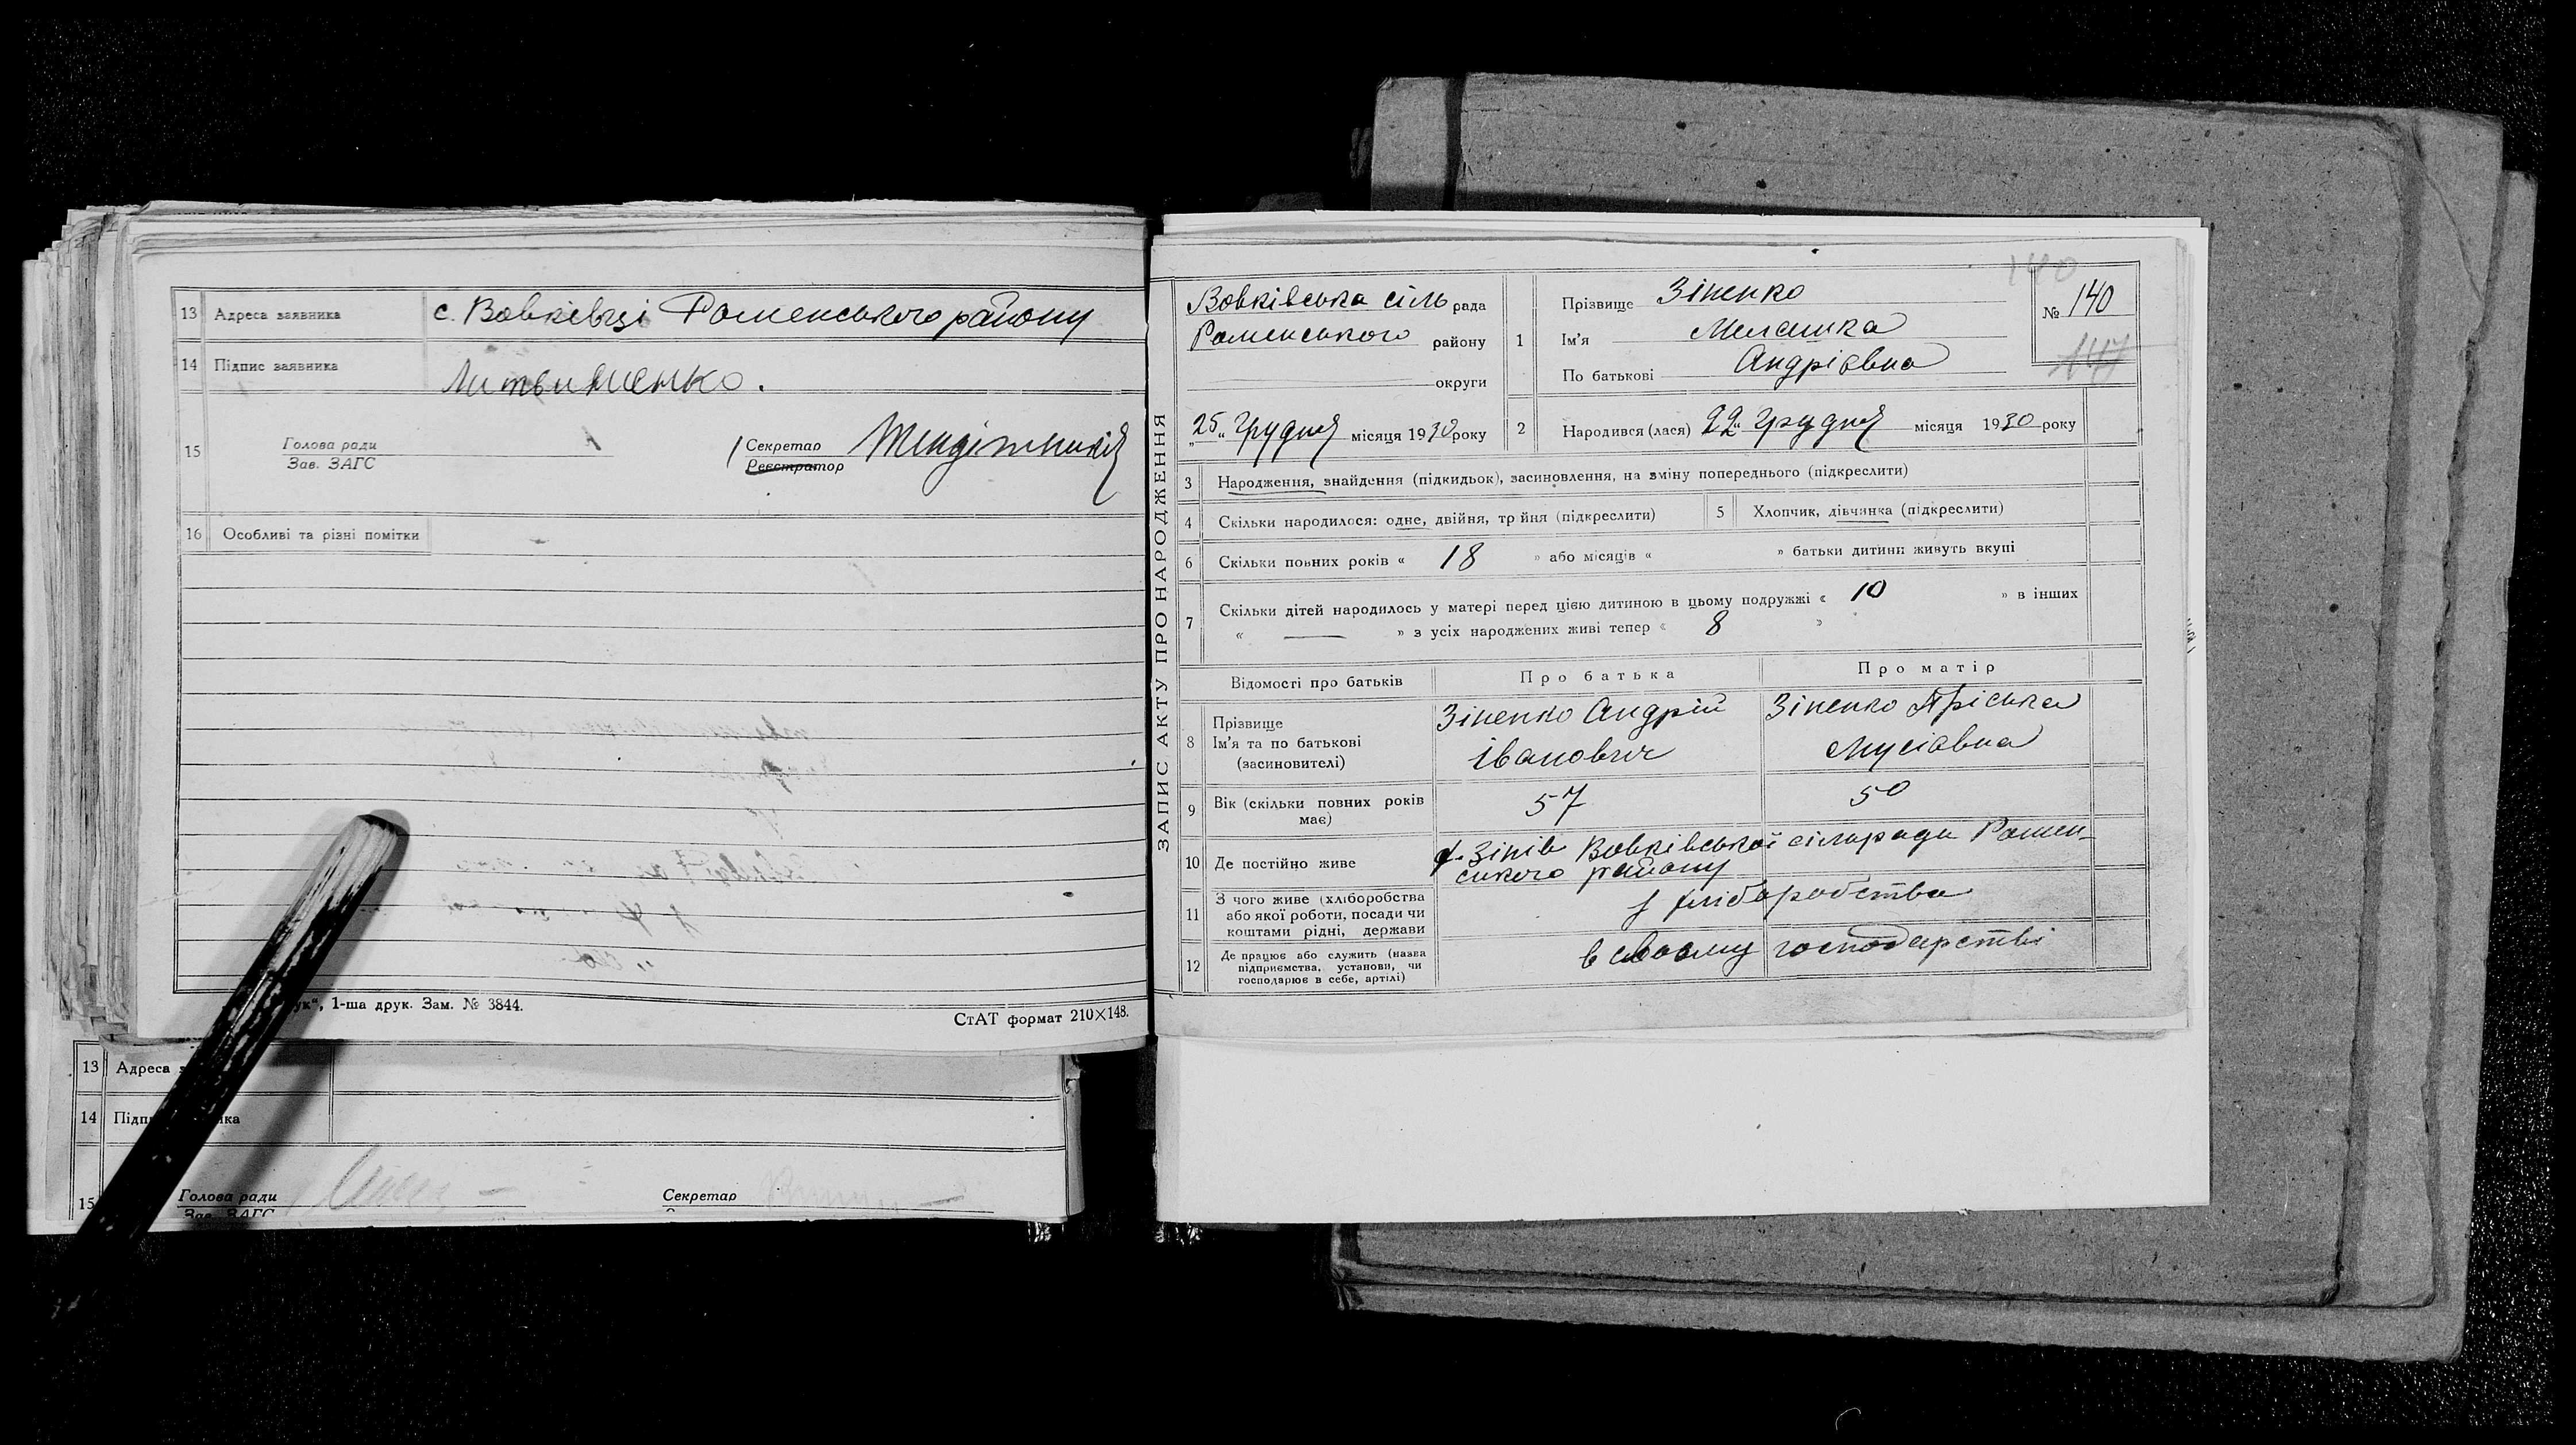 13 Адреса заявника с. Вовківці Роменського району
14 Підпис заявника Литвиненко.
15 Голова ради
Зав. ЗАГС
Секретар
Реєстратор
16 Особливі та різні помітки
ук“, 1-ша друк. Зам. № 3844.
СтАТ формат 210×148.
13 Адреса
14
15 Голова ради
Зав. ЗАГС
Секретар
ЗАПИС АКТУ ПРО НАРОДЖЕННЯ
Вовківська сіль рада
Роменського району
округи
„25“ грудня місяця 1930 року
1 Прізвище Зіненко
Ім'я Меланка
По батькові Андріівна
140
№ 140
147
2 Народився (лася) 22 „ грудня місяця 1930 року
3 Народження, знайдення (підкидьок), засиновлення, на зміну попереднього (підкреслити)
4 Скільки народилося: одне, двійня, тр йня (підкреслити)
5 Хлопчик, дівчинка (підкреслити)
6 Скільки повних років « 18 » або місяців « » батьки дитини живуть вкупі
7 Скільки дітей народилось у матері перед цією дитиною в цьому подружжі « 10 » в інших
« — » з усіх народжених живі тепер « 8 »
Відомості про батьків Про батька Про матір
8 Прізвище
Ім'я та по батькові
(засиновителі)
Зіненко Андрій
Іванович
Зіненко Пріська
Мусіівна
9 Вік (скільки повних років
має)
57 50
10 Де постійно живе х. Зінів Вовківської сільради Ромен-
ського району
11 З чого живе (хліборобства
або якої роботи, посади чи
коштами рідні, держави
з хліборобства
12 Де працює або служить (назва
підприємства, установи, чи
господарює в себе, артілі)
в своєму господарстві